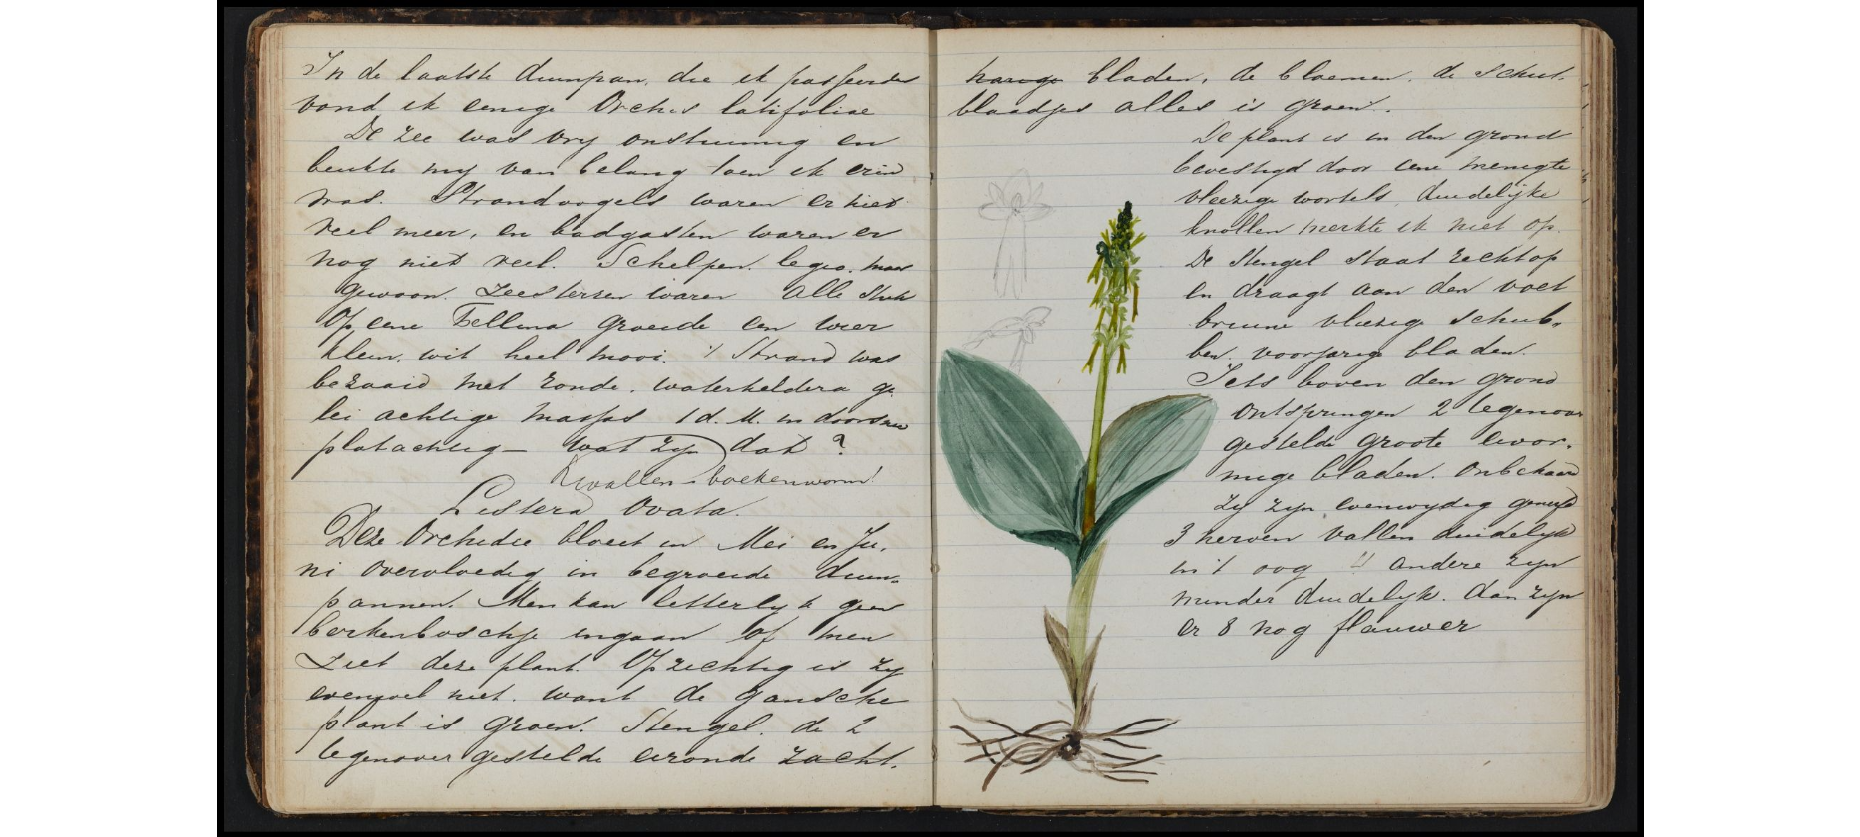 In de laatste duinpan, die ik passeerde
vond ik eenige Orchis latifoliae
De zee was vrij onstuimig en
beukte mij van belang toen ik erin
was. Strandvogels waren er niet
veel meer, en badgasten waren er
nog niet veel. Schelpen legio, maar
gewoon. Zeesterren waren alle stuk
Op eene Tellina groeide een wier
klein, wit heel mooi. 't Strand was
bezaaid met ronde, waterheldere ge-
lei achtige massas 1 d.M. in doorsnee
platachtig — wat zijn dat?
Kwallen boekenworm!
Listera Ovata.
Deze Orchidee bloeit in Mei en Ju-
ni overvloedig in begroeide duin-
pannen. Men kan letterlijk geen
berkenboschje ingaan of men
ziet deze plant. Opzichtig is zij
evenwel niet. want de gansche
plant is groen. Stengel, de 2
tegenover gestelde eironde zacht-
harige bladen, de bloemen, de schut-
blaadjes alles is groen.
De plant is in den grond
bevestigd door eene menigte
vleezige wortels, duidelijke
knollen merkte ik niet op.
De Stengel staat rechtop
en draagt aan den voet
bruine vliezige schub-
ben. voorjarige bladen.
Iets boven den grond
ontspringen 2 tegenover
gestelde groote eivor-
mige bladen. Onbehaard
Zij zijn evenwijdig generfd
3 nerven vallen duidelijk
in 't oog 4 andere zijn
minder duidelijk. dan zijn
er 8 nog flauwer